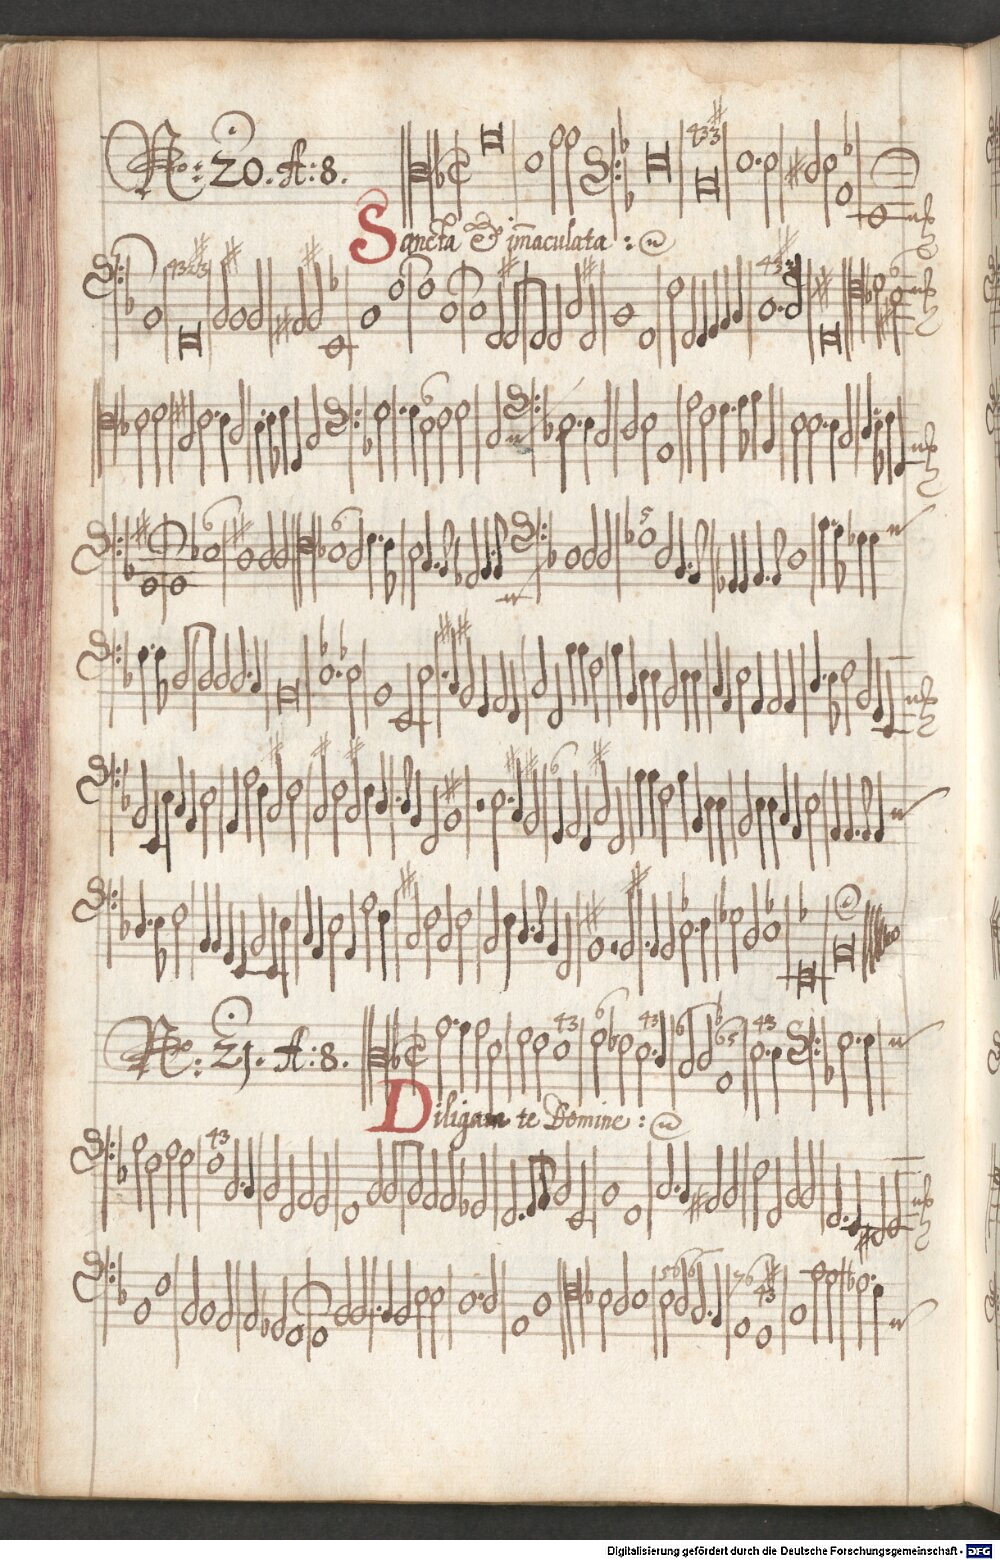 No: 20. A: 8.
Sancta & im̄aculata :
No: 21. A: 8.
Diligam te Domine :
Digitalisierung gefördert durch die Deutsche Forschungsgemeinschaft - DFG